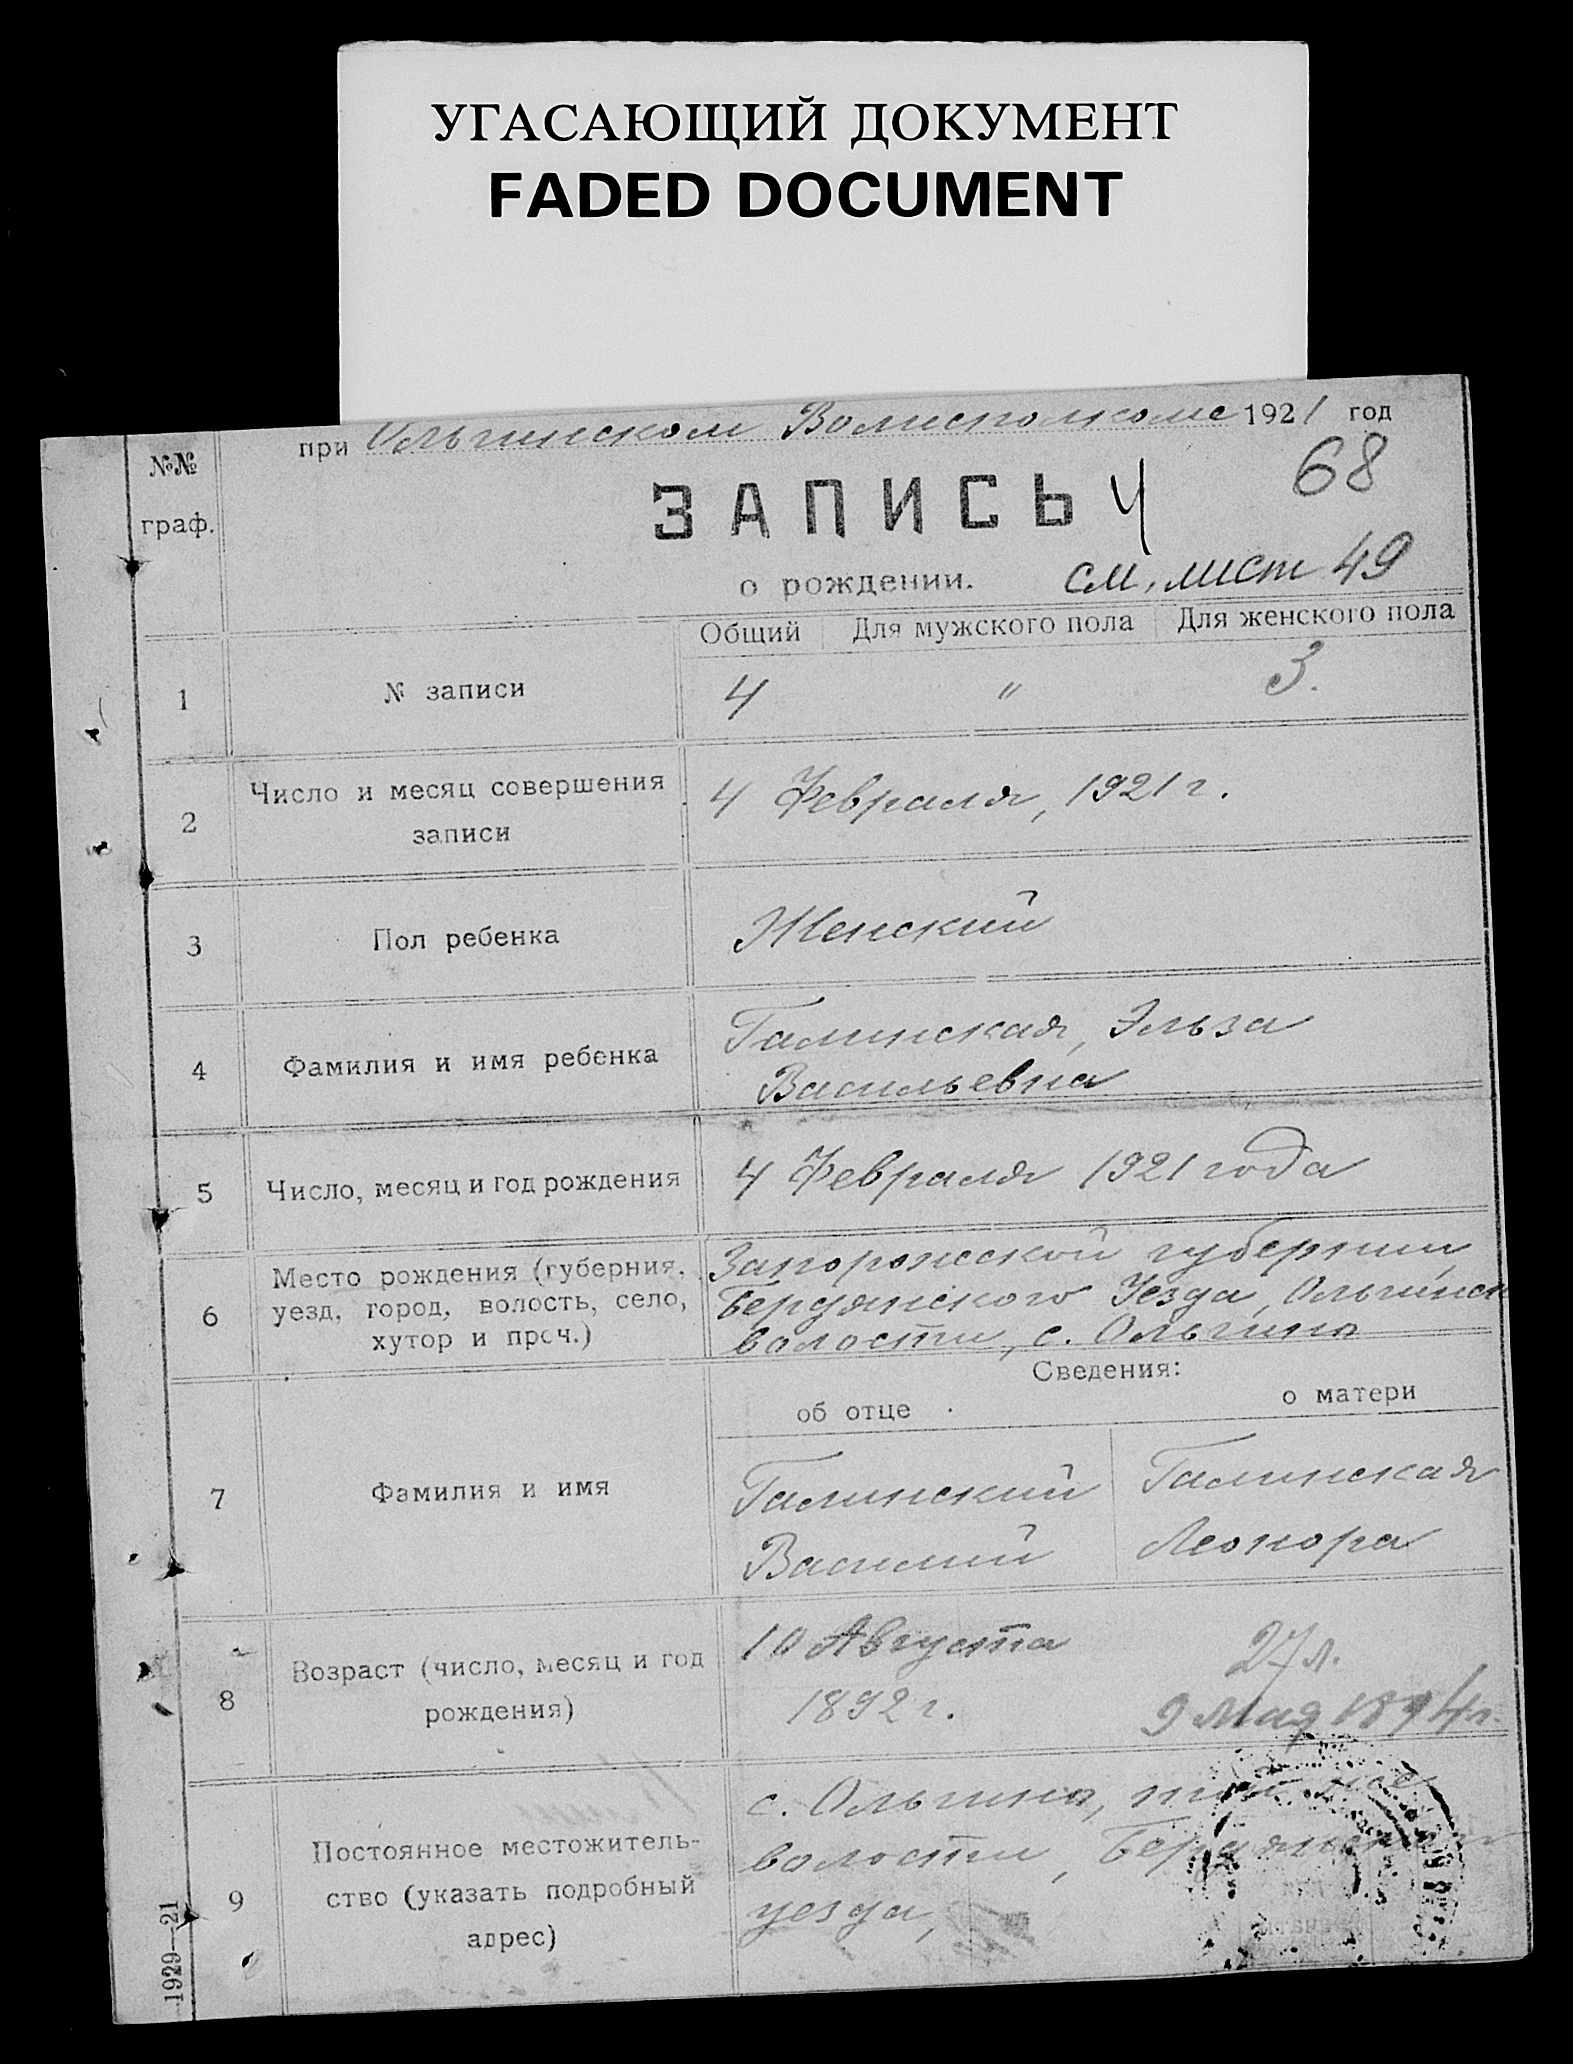 УГАСАЮЩИЙ ДОКУМЕНТ
FADED DOCUMENT
при Ольгинском Волисполкоме 1921 год
№№
граф.
68
ЗАПИСЬ 4
о рождении. см. лист 49
Общий Для мужского пола Для женского пола
1 № записи 4 " 3.
2 Число и месяц совершения
записи
4 Февраля, 1921 г.
3 Пол ребенка Женский
4 Фамилия и имя ребенка
Галинская, Эльза
Васильевна
5 Число, месяц и год рождения 4 Февраля 1921 года
6 Место рождения (губерния,
уезд, город, волость, село,
хутор и проч.)
Запорожской губернии,
Бердянского Уезда, Ольгинск
волости, с. Ольгино
Сведения:
об отце о матери
7 Фамилия и имя
Галинский Галинская
Василий Леонора
8 Возраст (число, месяц и год
рождения)
10 Августа 27 л.
1892 г. 9 Мая 1894 г.
9 Постоянное местожитель-
ство (указать подробный
адрес)
с. Ольгино, той же
волости, Бердянского
уезда,
1929—21